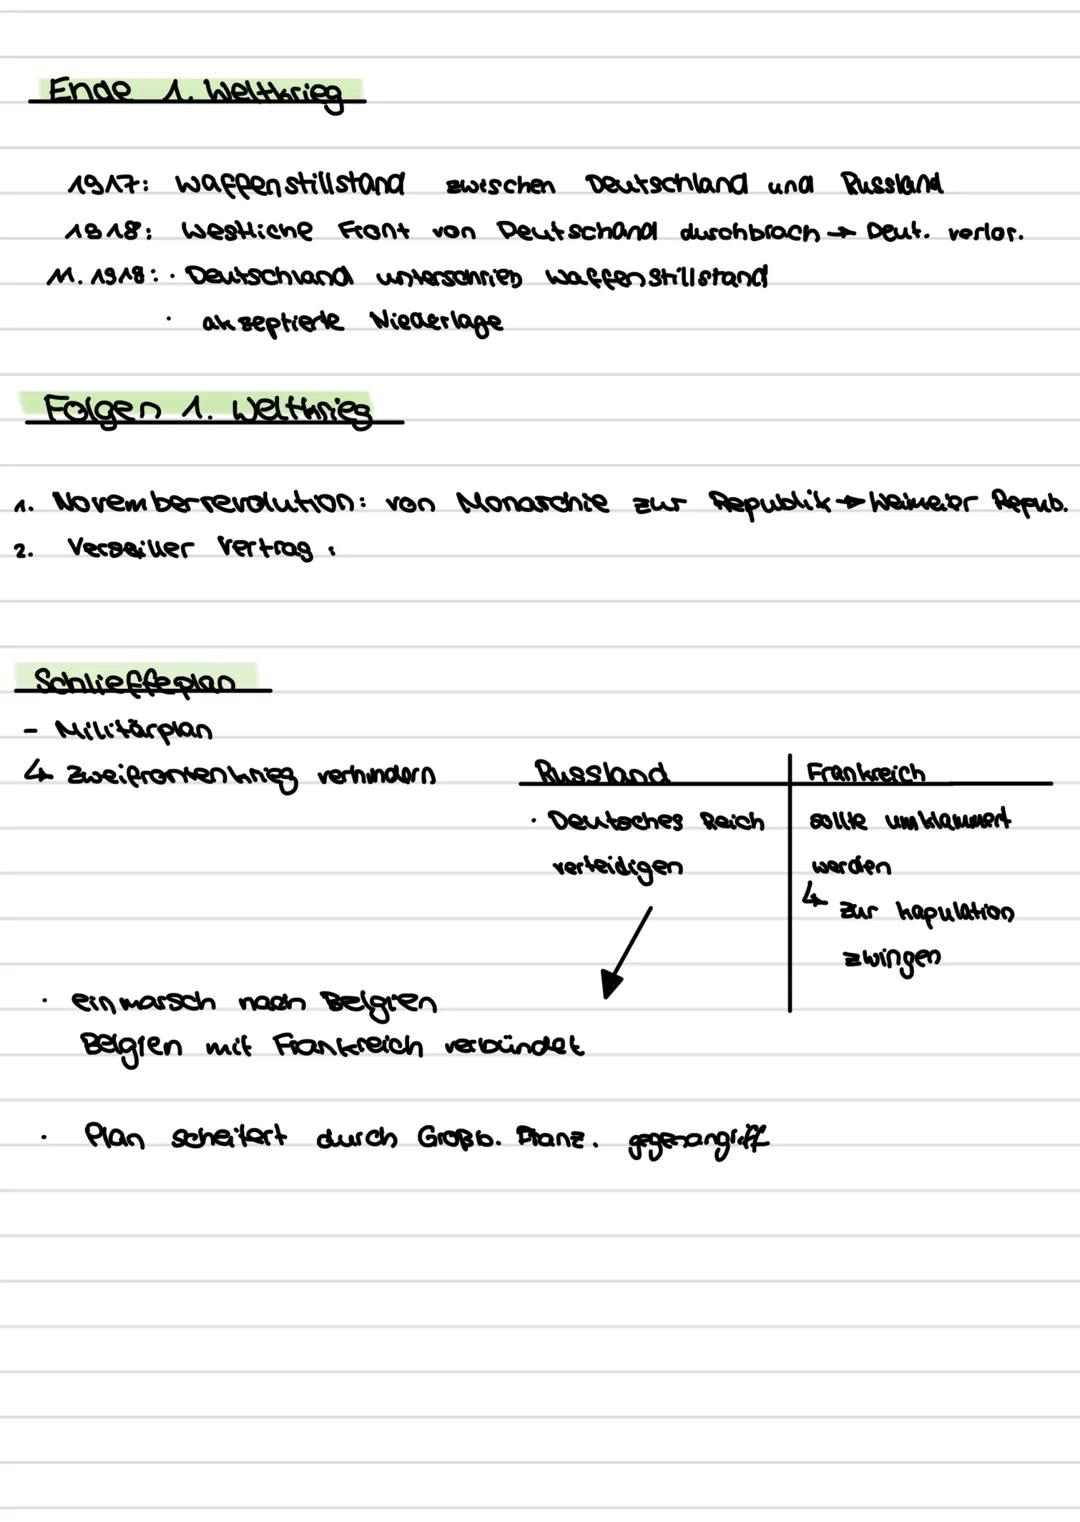 Ende 1. Weltkrieg
1917: Waffenstillstand zwischen Deutschland und Russland
1918: Westliche Front von Deutschand durchbrach → Deut. verlor.
11. 1918: · Deutschland unterschrieb Waffenstillstand
· akzeptierte Niederlage
Folgen 1. Weltkrieg
1. Novemberrevolution: von Monarchie zur Republik → Weimarer Repub.
2. Versailler Vertrag:
Schlieffeplan
- Militärplan
↳ Zweifrontenkrieg verhindern
Russland
· Deutsches Reich
verteidigen
Frankreich
sollte umklammert
werden
↳ zur kapulation
zwingen
· einmarsch nach Belgien
Belgien mit Frankreich verbündet
· Plan scheitert durch Großb. Franz. gegenangriff